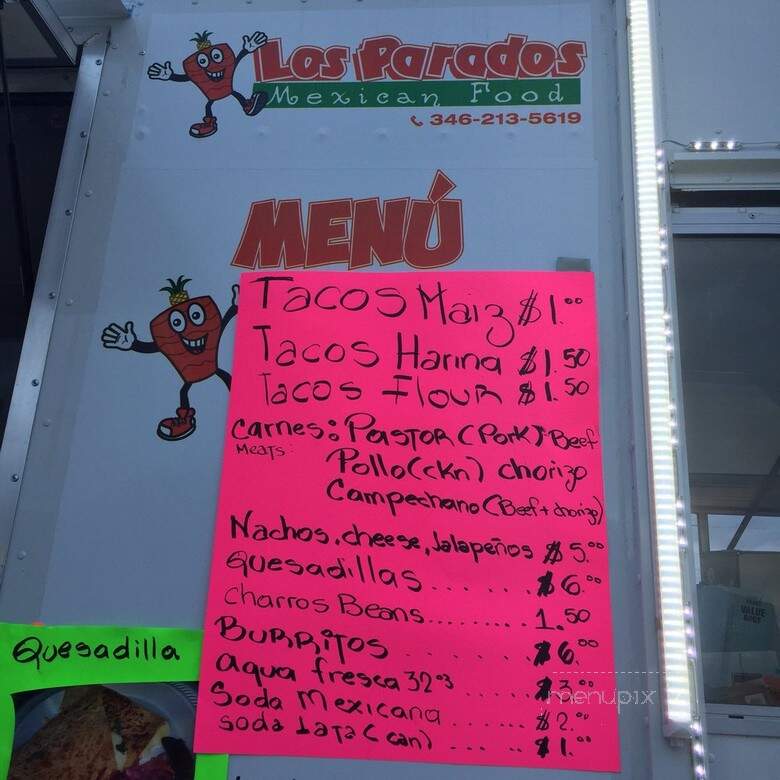 Los Parados
Mexican Food
346-213-5619
MENÚ
Tacos Maiz $1.00
Tacos Harina $1.50
Tacos Flour $1.50
Carnes: Pastor (Pork) Beef
Meats:
Pollo (ckn) chorizo
Campechano (Beef + chorizo)
Nachos, cheese, Jalapeños $5.00
Quesadillas...... $6.00
Charros Beans......... 1.50
Burritos ...... $6.00
agua fresca 32oz .... $3.00
Soda Mexicana .... $2.00
soda Lata (can) .... $1.00
Quesadilla
VALUE
menupix